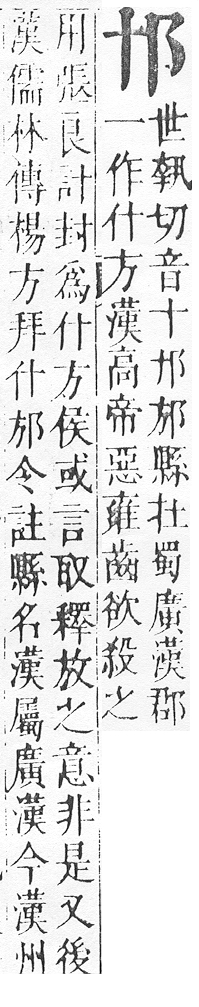 ⿰十阝
世執切音十⿰十阝邡縣在蜀廣漢郡
一作什方漢高帝惡雍齒欲殺之
用張良計封爲什方侯或言取釋放之意非是又後
漢儒林傳楊方拜什邡令註縣名漢屬廣漢今漢州